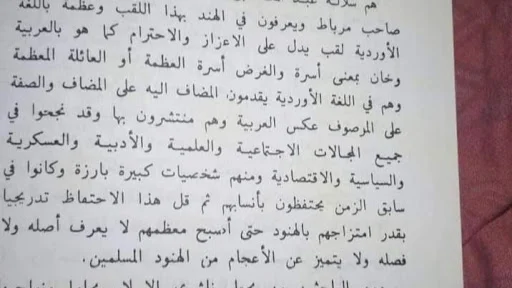 هم سلالة
صاحب مرباط ويعرفون في الهند بهذا اللقب وعظمة باللغة
الأوردية لقب يدل على الاعزاز والاحترام كما هو بالعربية
وخان بمعنى أسرة والغرض أسرة العظمة أو العائلة المعظمة
وهم في اللغة الأوردية يقدمون المضاف اليه على المضاف والصفة
على المرصوف عكس العربية وهم منتشرون بها وقد نجحوا في
جميع المجالات الاجتماعية والعلمية والأدبية والعسكرية
والسياسية والاقتصادية ومنهم شخصيات كبيرة بارزة وكانوا في
سابق الزمن يحتفظون بأنسابهم ثم قل هذا الاحتفاظ تدريجيا
بقدر امتزاجهم بالهنود حتى أدسبح معظمهم لا يعرف أصله ولا
فصله ولا يتميز عن الأعجام من الهنود المسلمين.